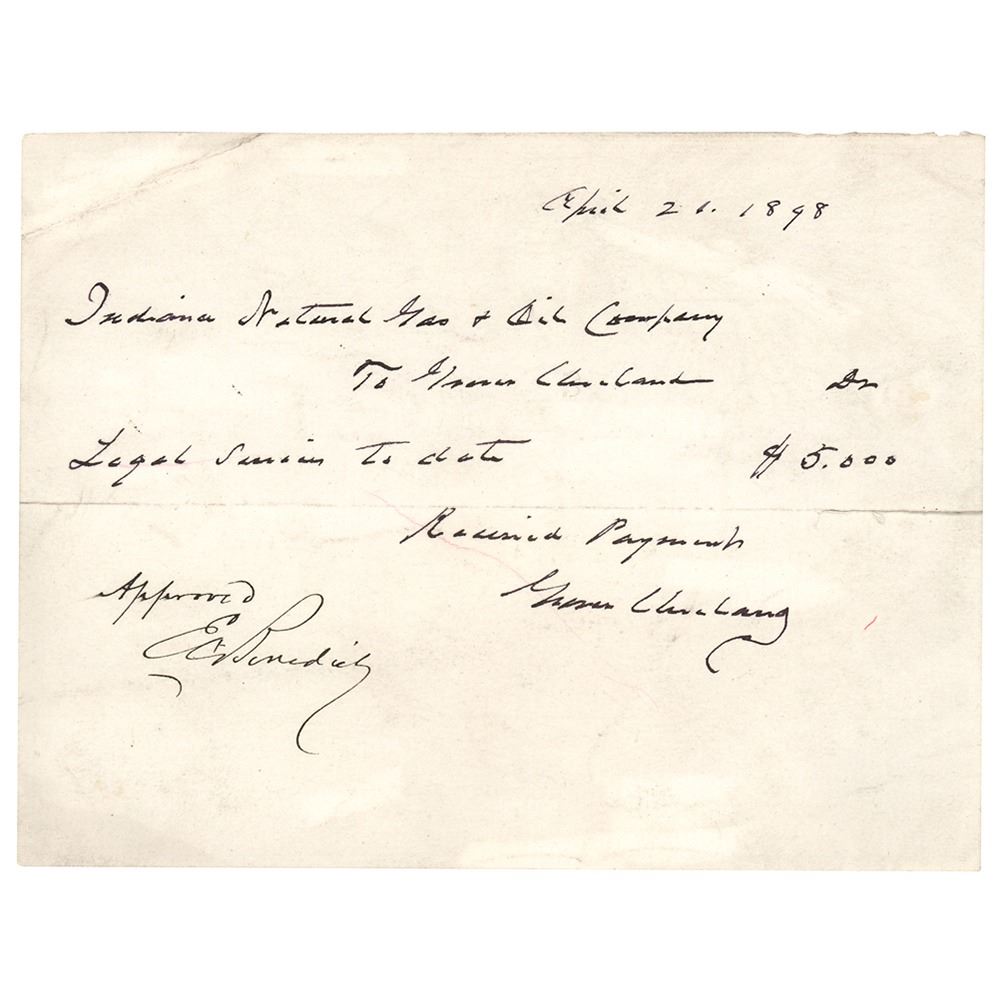 April 21. 1898
Indiana Natural Gas & Oil Company
To Grover Cleveland Dr
Legal Services to date $5.000
Received Payment
Grover Cleveland
Approved
E C Benedict